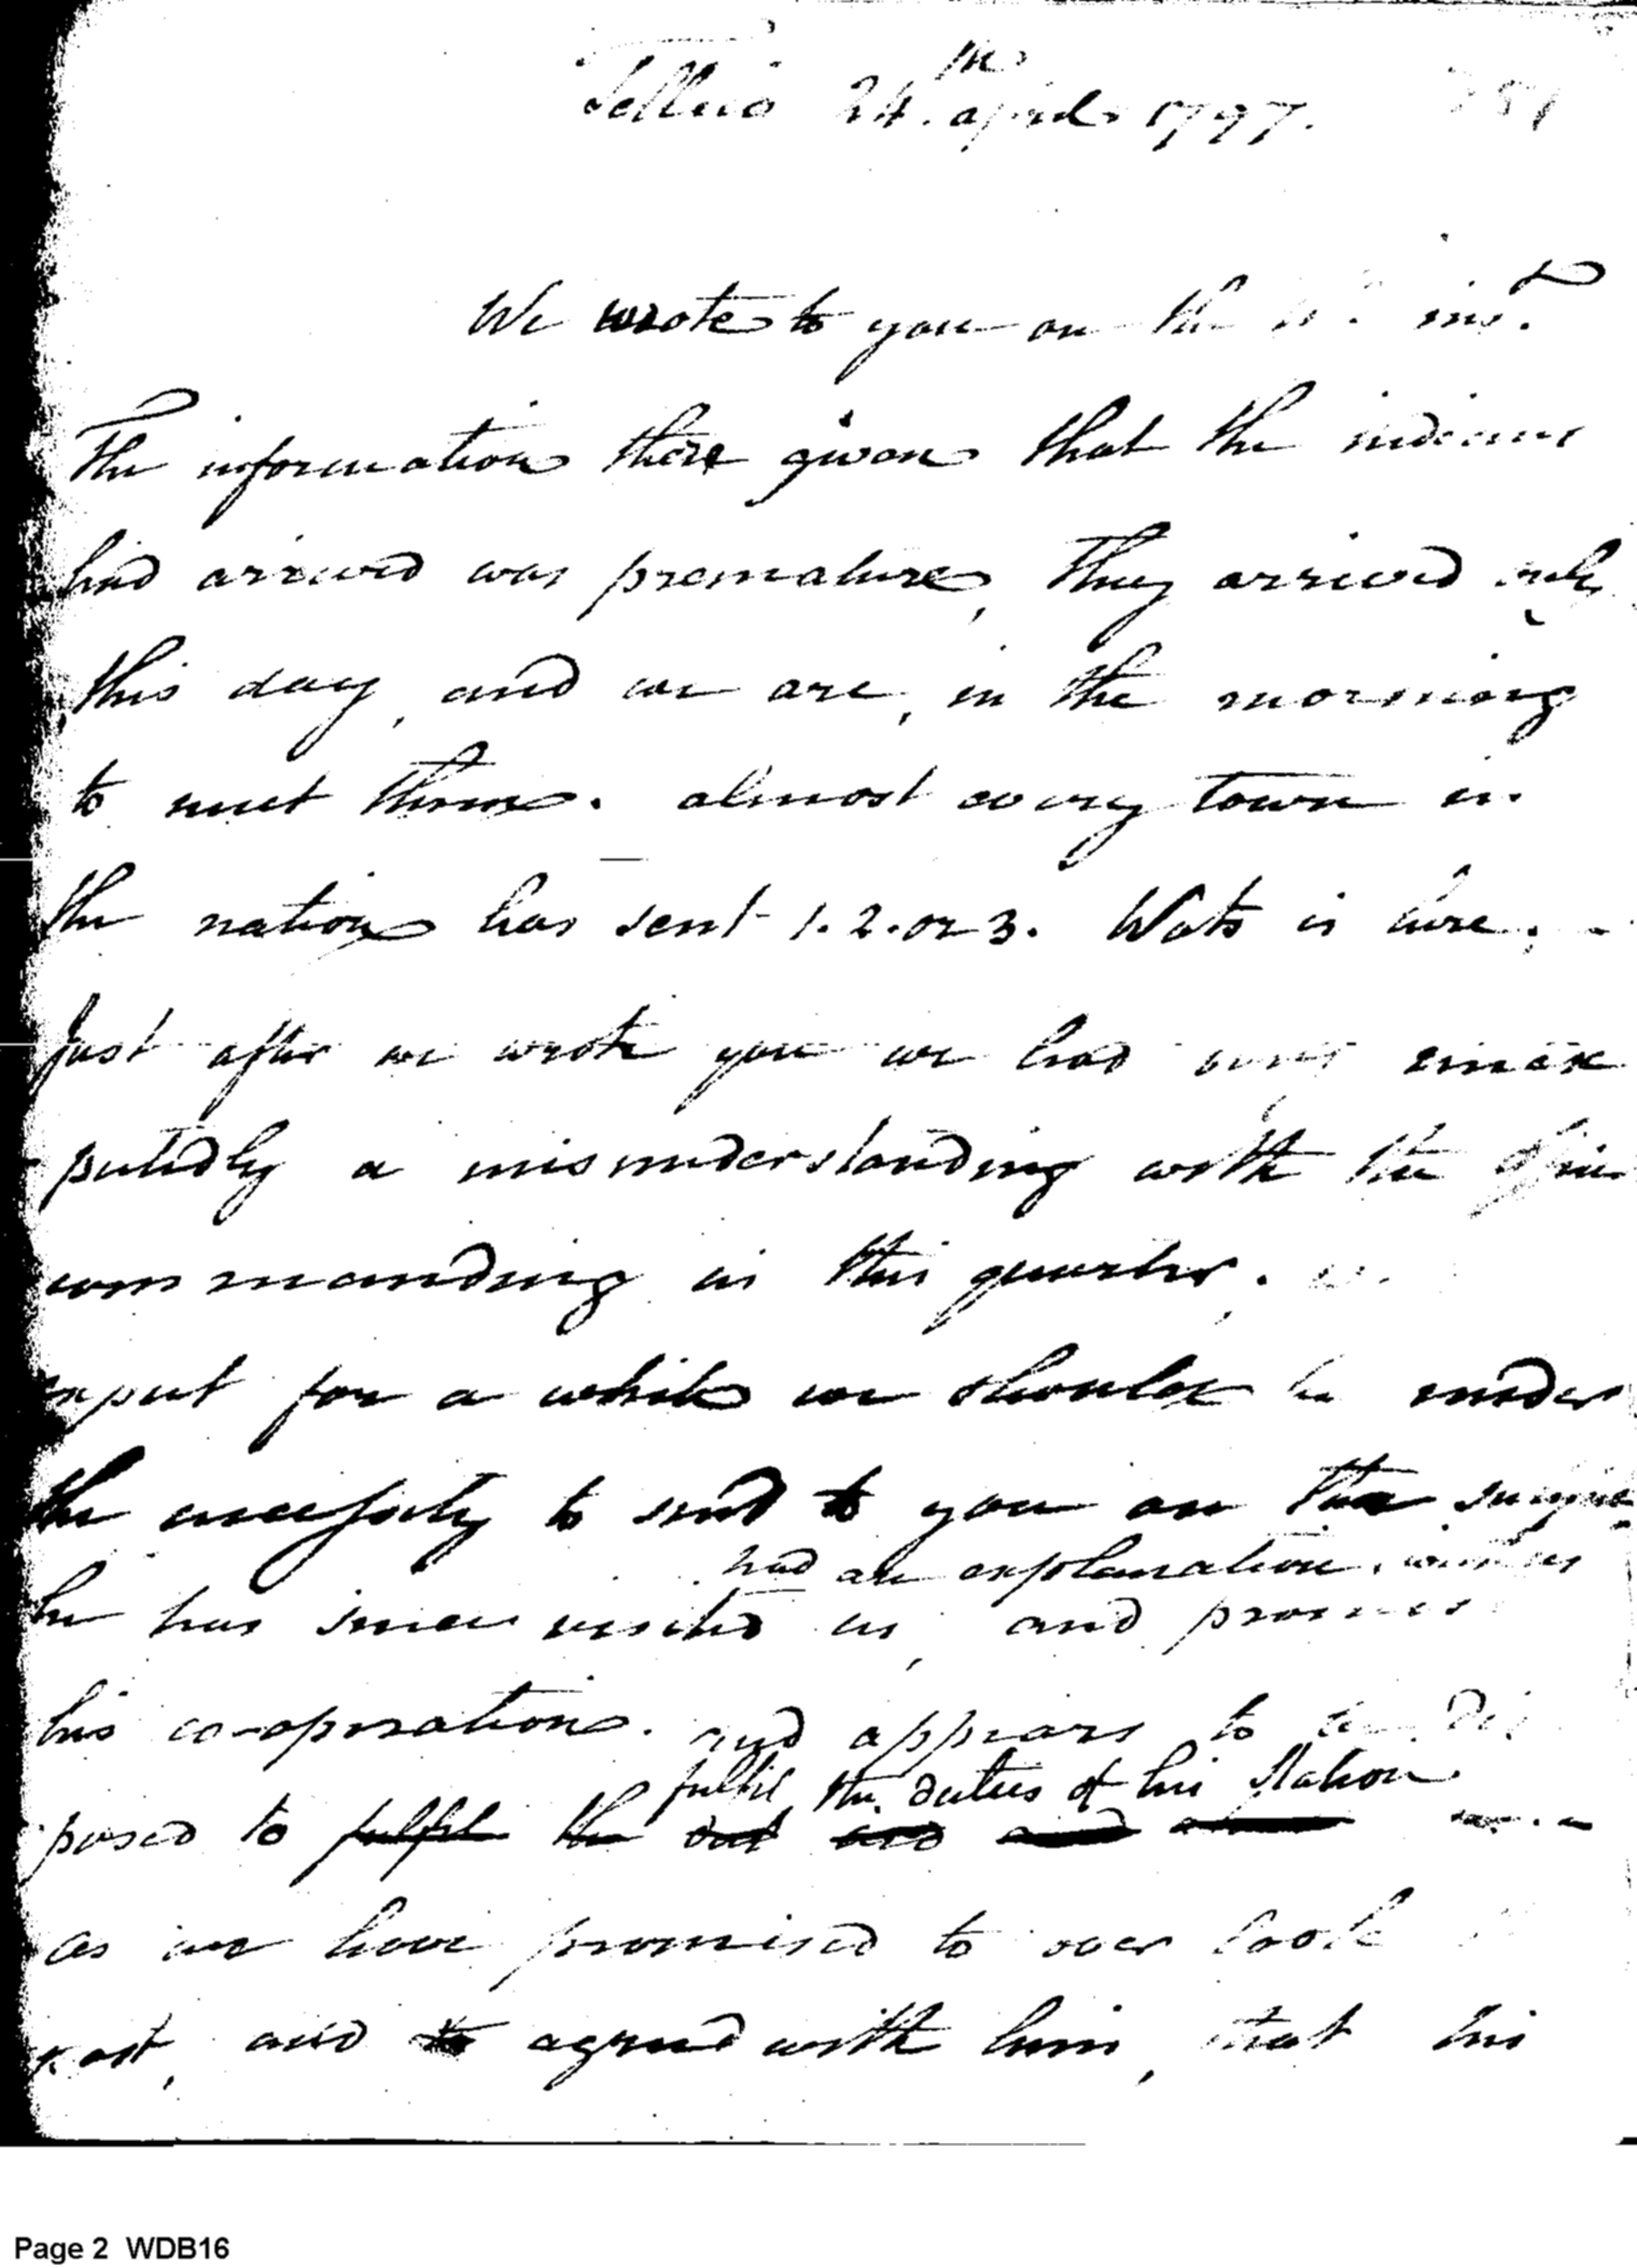 Tellico 24th april 1797.
We wrote to you on the inst.
The information there given that the indians
had arrived was premature, They arrived only
this day, and we are, in the morning
to meet them. almost every town in
the nation has sent 1. 2. or 3. Wats is here.
Just after we wrote you we had very unex
pectedly a misunderstanding with the
commanding in this quarter.
expect for a while we should be under
the necessity to send to you on the
had an explanation, with us
he has since visited us, and
his co-operation. and appears to be dis
fulfil the duties of his station
posed to fulfil the dut and and
as we have promised to over look
past, and to agreed with him, that his
Page 2 WDB16